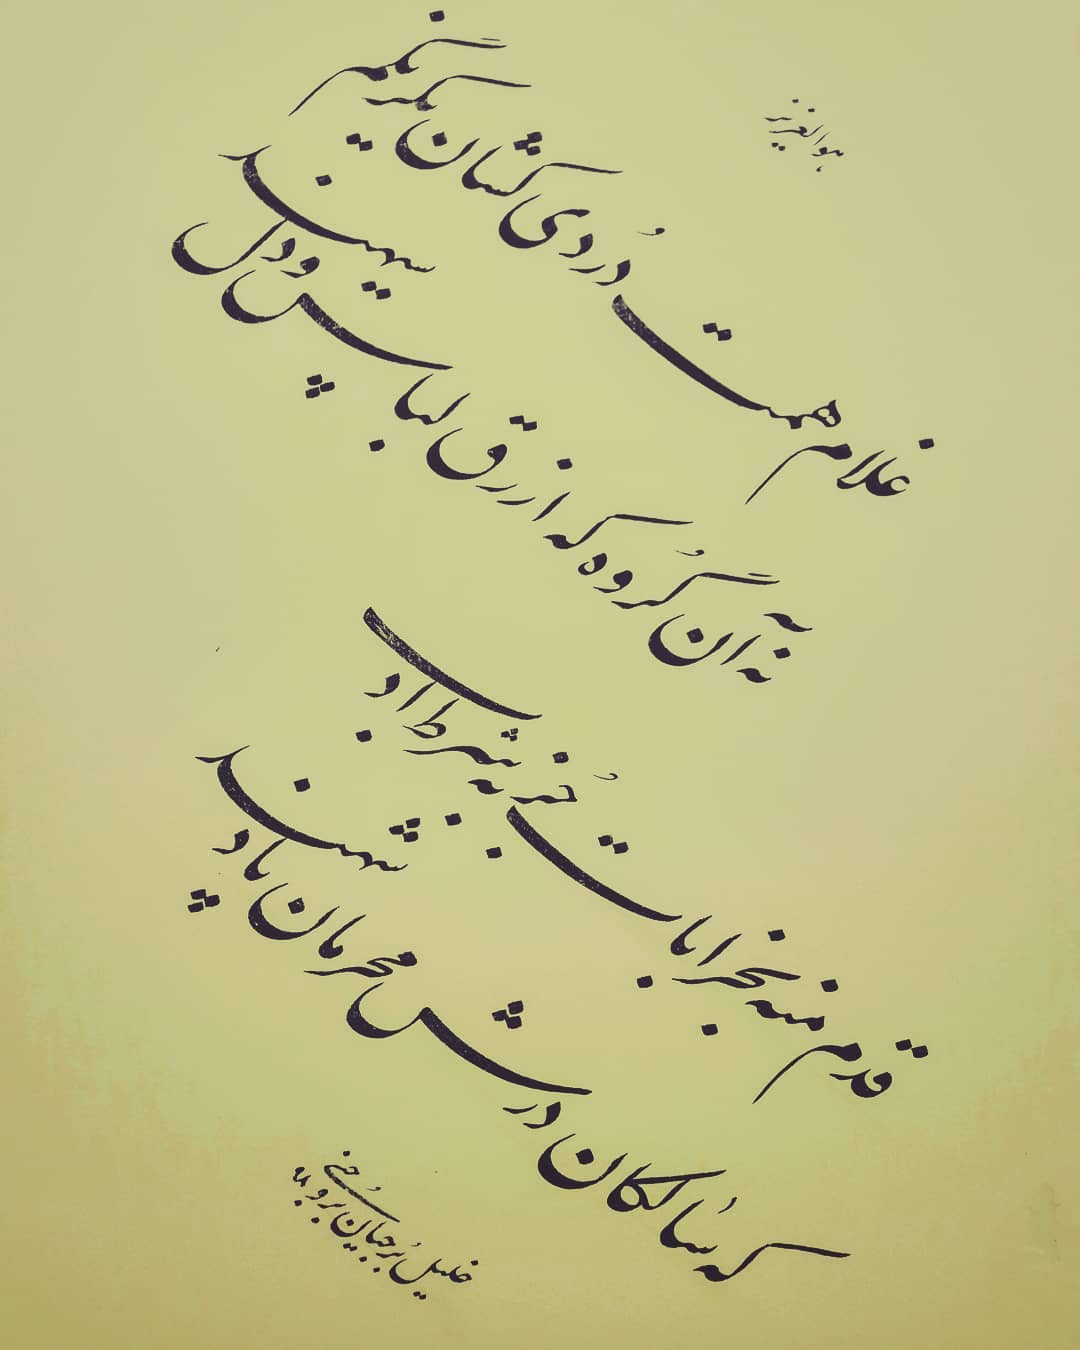 هوالعزیز
غلام همت دُردی کشان یکرنگم
نه آن گُروه که ازرق لباس و دل سیهند
قدم منه بخرابات جُز به شرط ادب
که سالکان درش محرمان پادشهند
خلیل بُرجیان